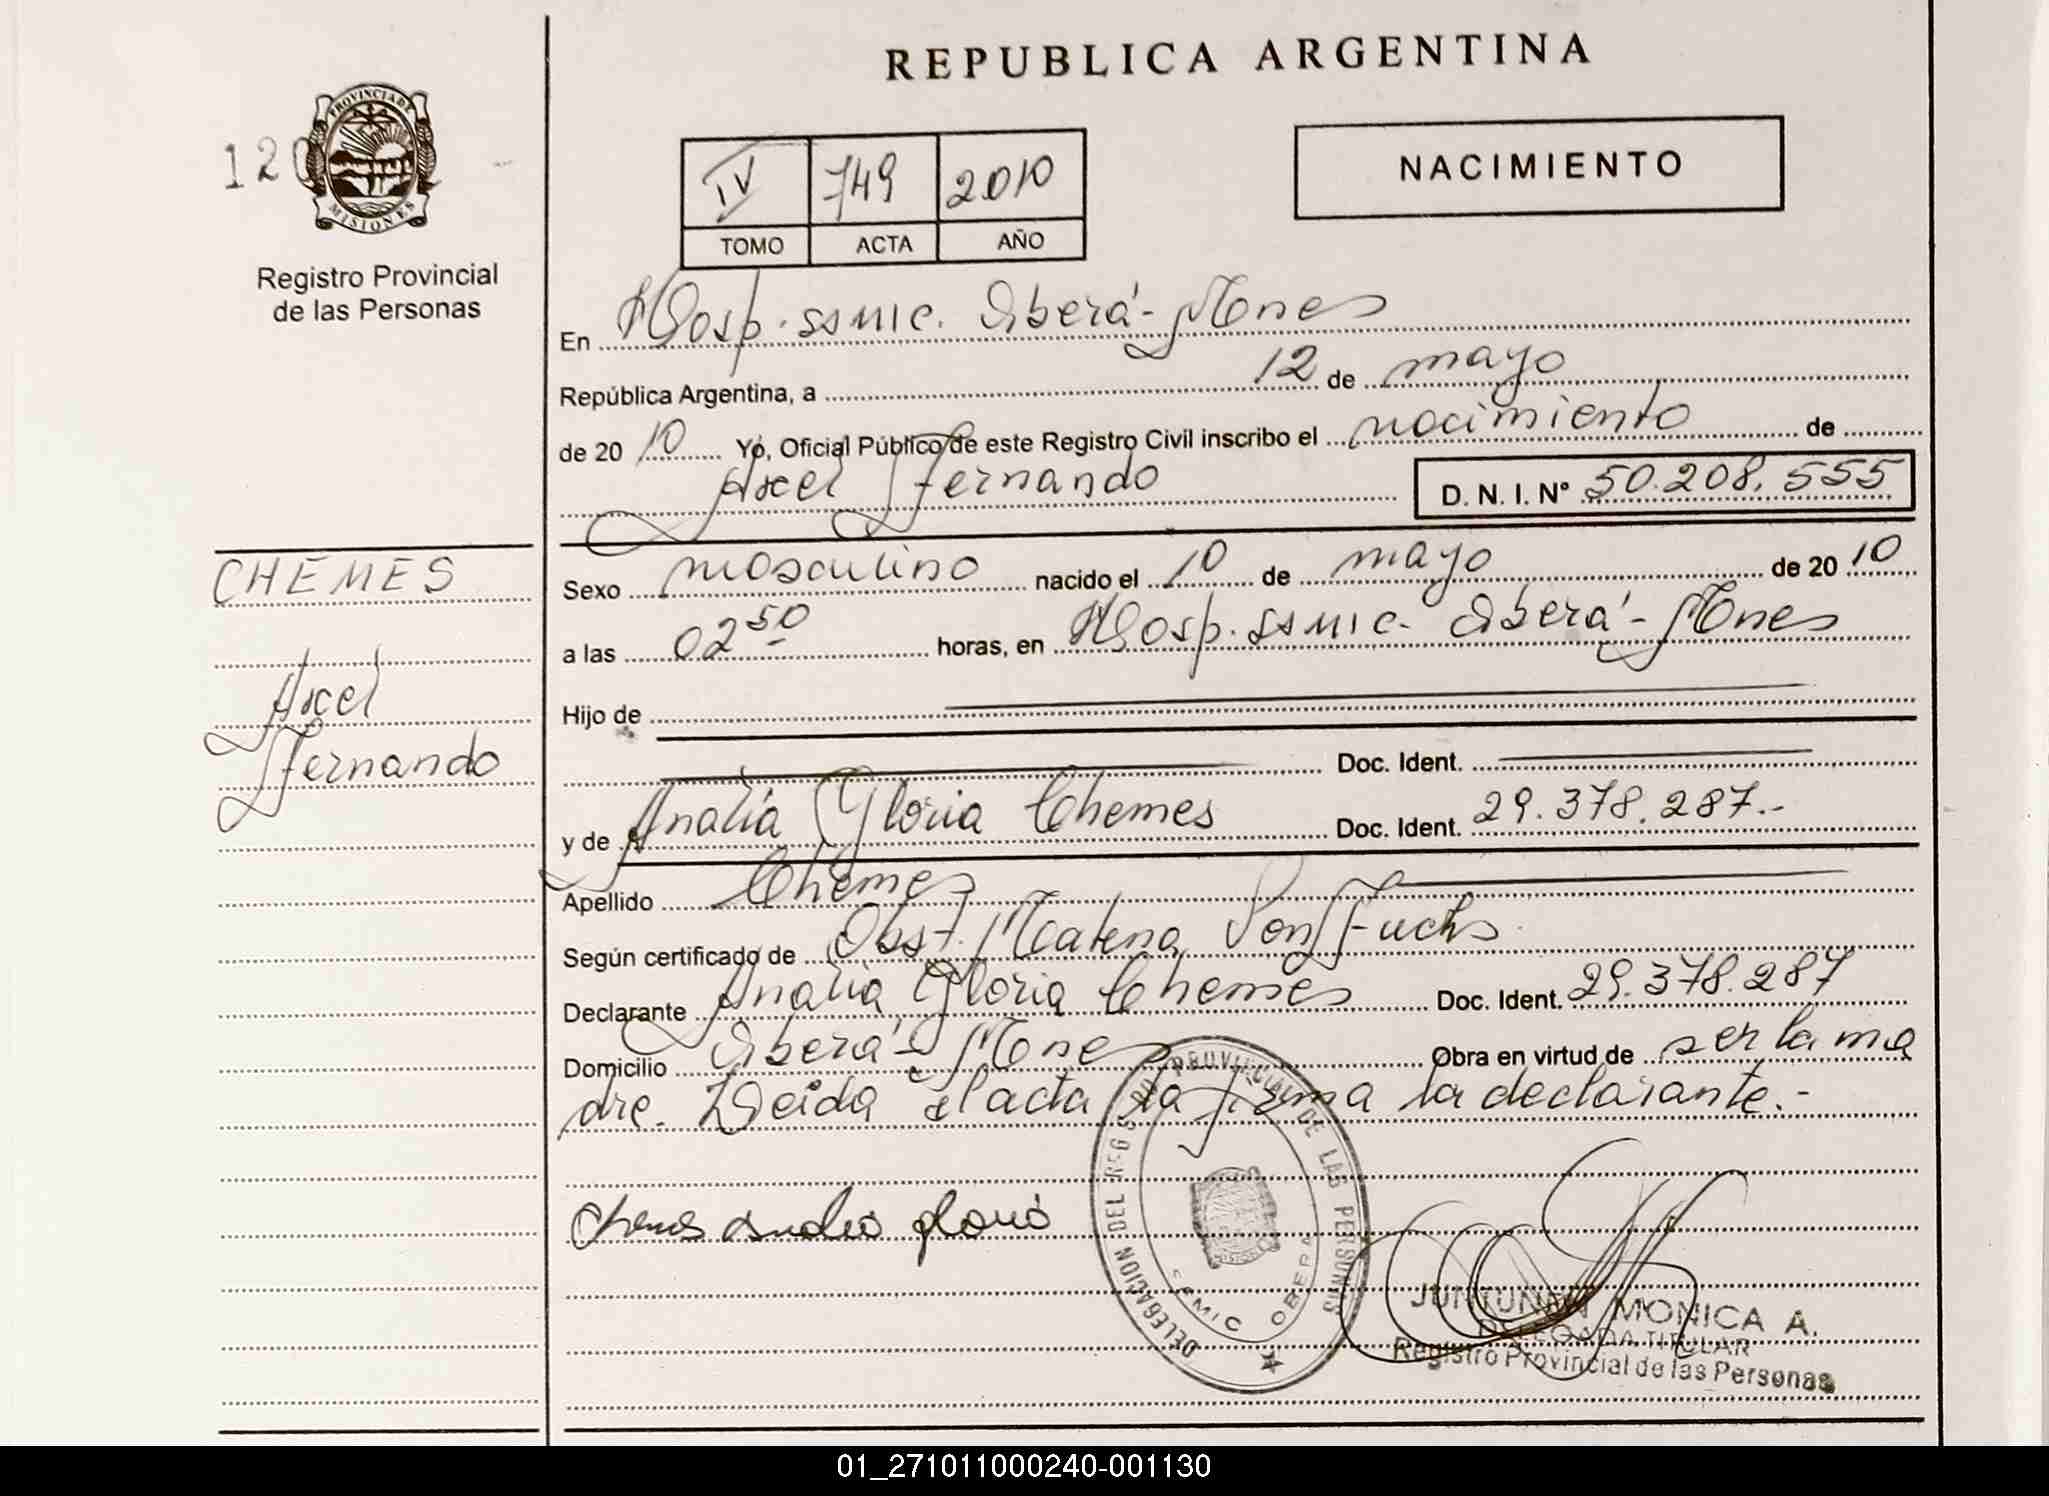 REPUBLICA ARGENTINA
120
PROVINCIA DE
MISIONES
Registro Provincial
de las Personas
IV 749 2010
TOMO ACTA AÑO
NACIMIENTO
En Hosp. SSMIC. Oberá - Mnes
República Argentina, a 12 de mayo
de 2010 Yo, Oficial Público de este Registro Civil inscribo el nacimiento de
Axel Fernando D. N. I. Nº 50.208.555
CHEMES
Axel
Fernando
Sexo masculino nacido el 10 de mayo de 2010
a las 02 50 horas, en Hosp. SSMIC. Oberá - Mnes
Hijo de
Doc. Ident.
y de Analía Gloria Chemes Doc. Ident. 29.378.287.-
Apellido Chemes
Según certificado de Obst. Von Fuchs
Declarante Analía Gloria Chemes Doc. Ident. 29.378.287
Domicilio Oberá - Mnes Obra en virtud de ser la ma
dre. Leída el acta la firma la declarante.-
Chemes Analia gloria
DELEGACION DEL REGISTRO PROVINCIAL DE LAS PERSONAS
SSMIC OBERA
MONICA A.
DELEGADA TITULAR
Registro Provincial de las Personas
01_271011000240-001130